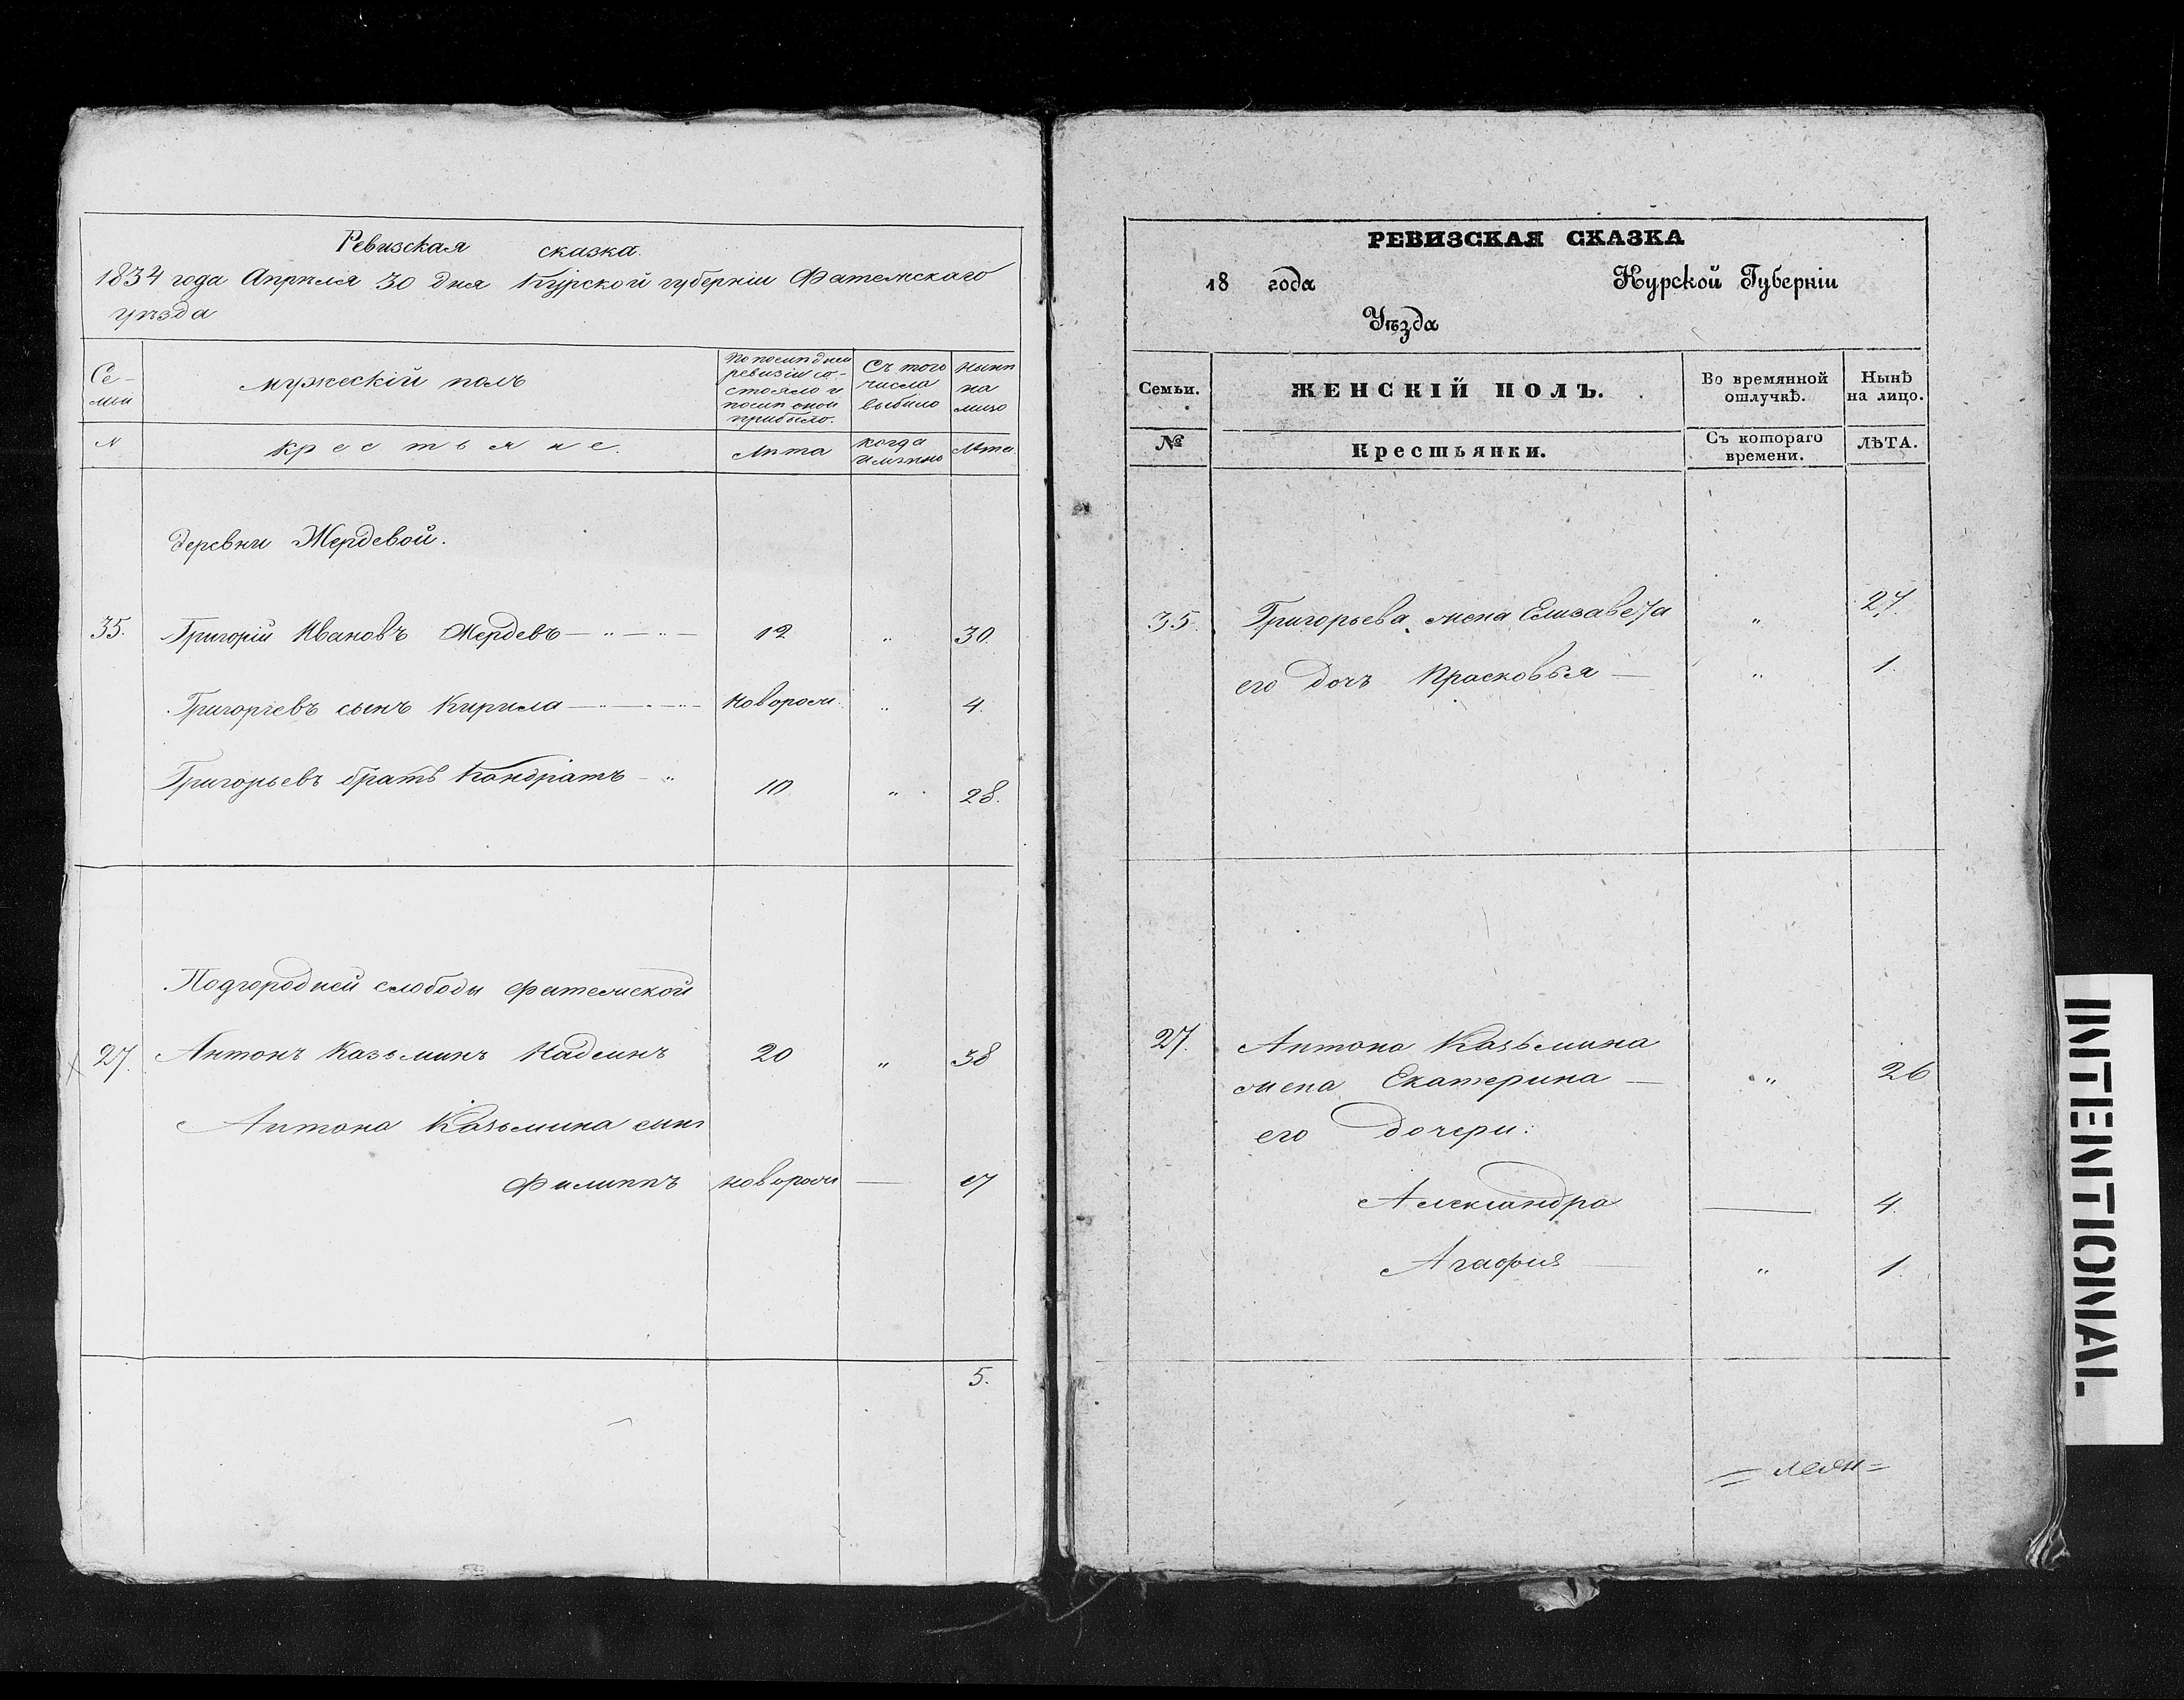 Ревизская сказка.
1834 года Апрѣля 30 дня Курской губерніи Фатежскаго
уѣзда
Се-
мьи
мужескій полъ
По послѣдней
ревизіи со-
стояло и
послѣ оной
прибыло.
Съ того
числа
выбыло
Нынѣ
на
лицо
N
Крестьяне.
Лѣта
когда
имянно
Лѣта
деревни Жердевой.
35. Григорій Ивановъ Жердевъ — „ — „ — 12 „ 30.
Григоріевъ сынъ Кирила — „ — „ — новорож. „ 4.
Григорьевъ братъ Кондратъ — „ 10 „ 28.
Подгородней слободы Фатежской
27. Антонъ Казьминъ 20 „ 38
Антона Казьмина сынъ
Филиппъ новорож —
5.
РЕВИЗСКАЯ СКАЗКА
18 года Курской Губерніи
Уѣзда
Семьи.
ЖЕНСКІЙ ПОЛЪ.
Во времянной
отлучкѣ.
Нынѣ
на лицо.
№
Крестьянки.
Съ котораго
времени.
ЛѢТА.
35. Григорьева жена Елизавета „ 27.
его дочь Прасковья — „ 1.
27. Антона Казьмина
жена Екатерина — „ 26
его дочери:
Александра — 4.
Агафия — „ 1.
INTENTIONAL